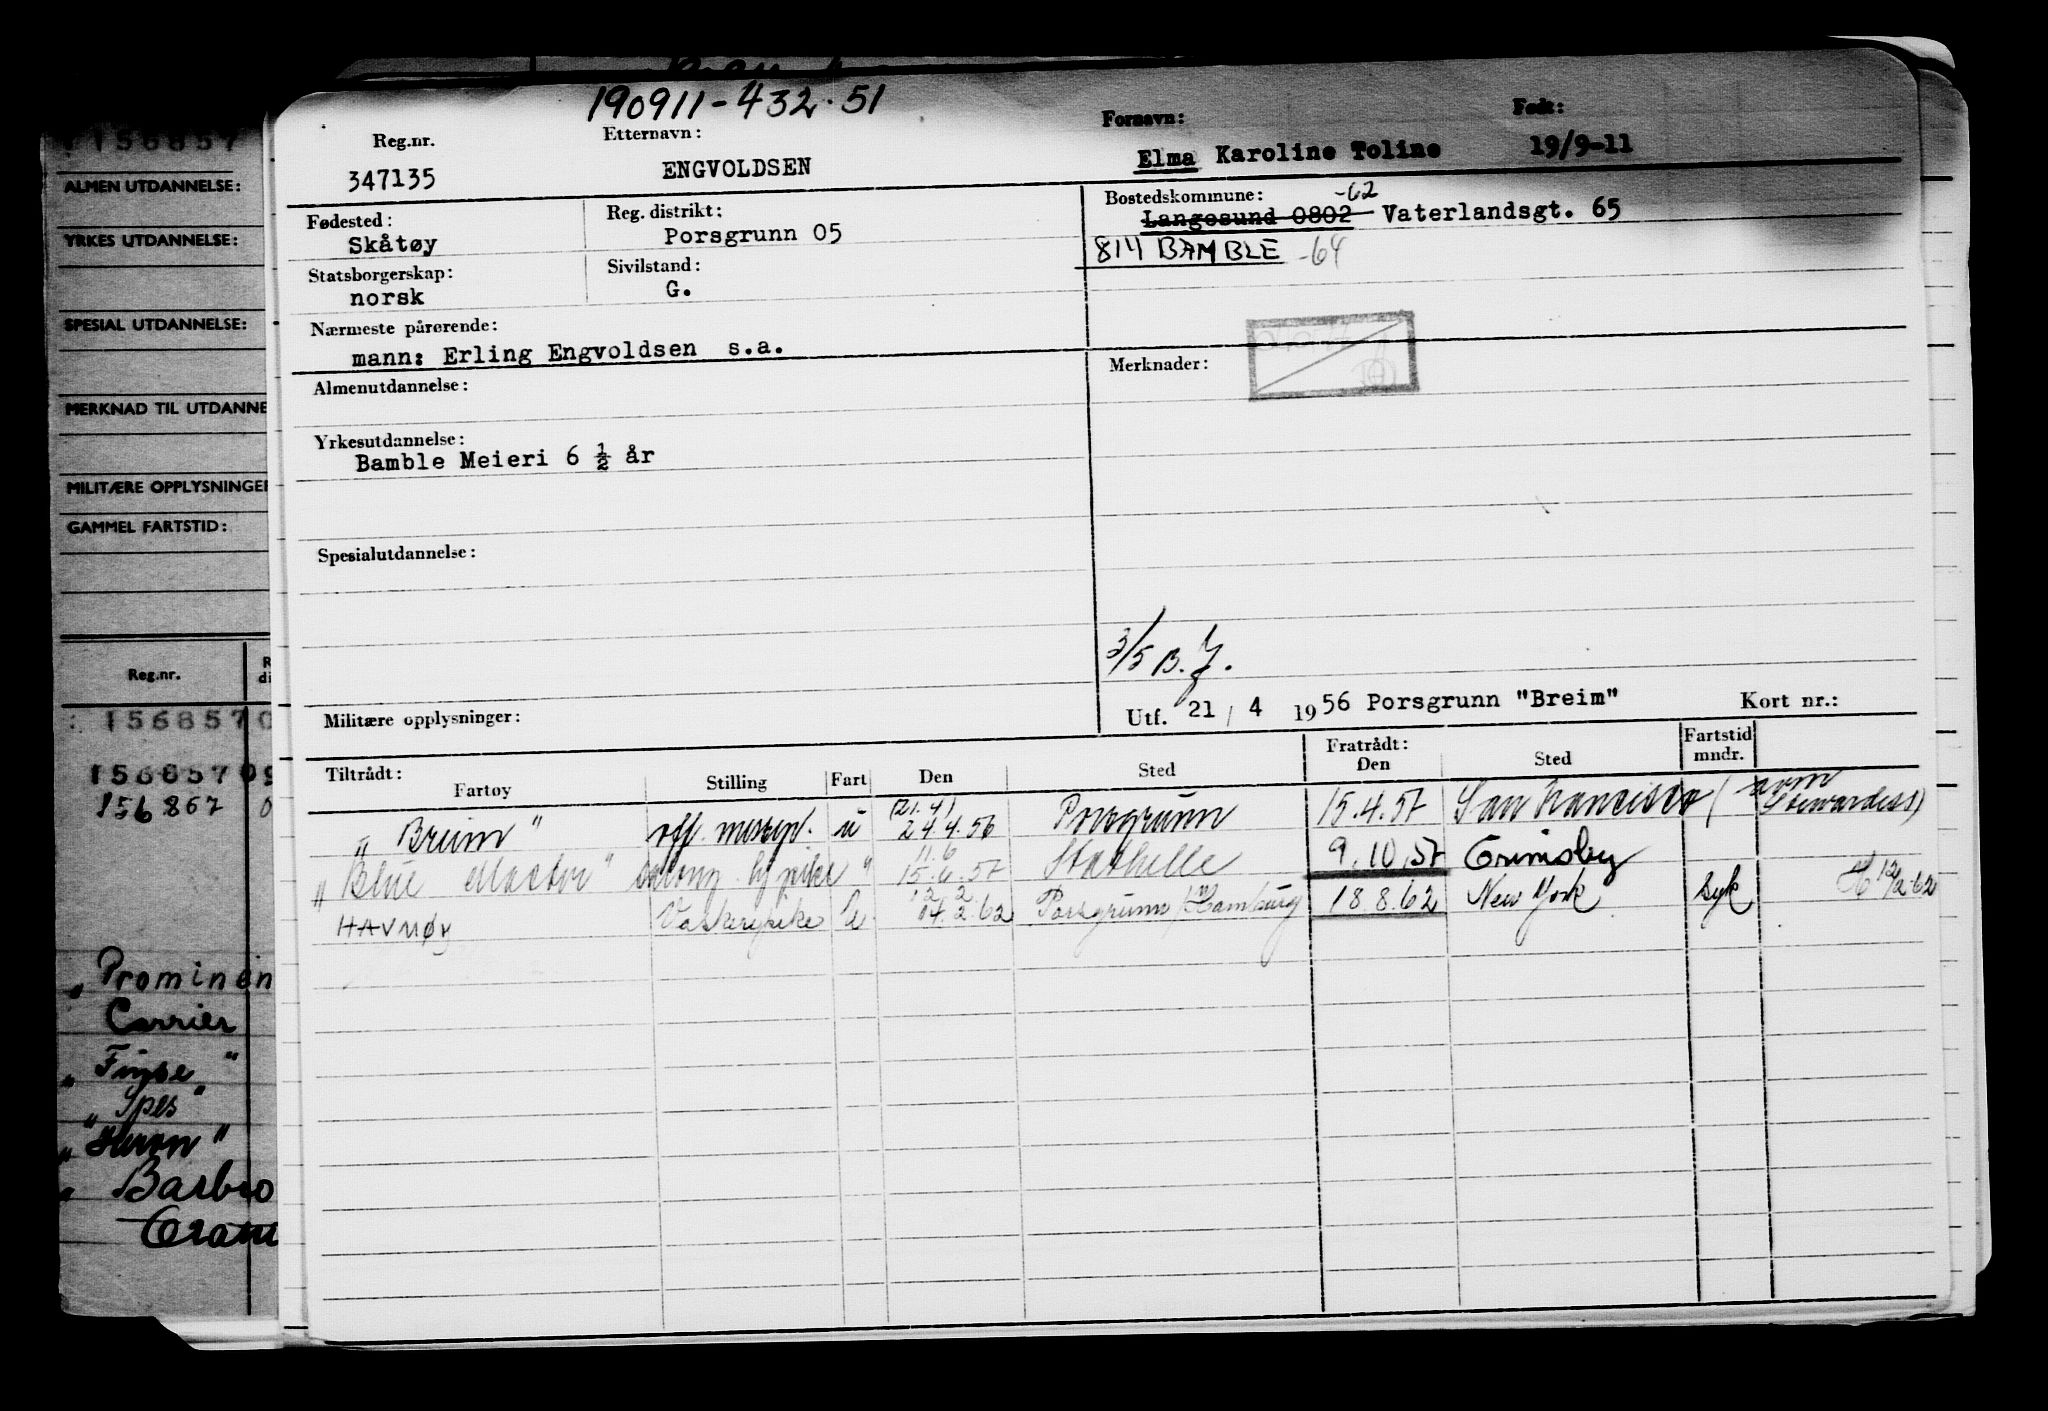 190911-432.51
Reg.nr. Etternavn: Fornavn: Født:
347135 ENGVOLDSEN Elma Karoline Toline 19/9-11
Fødested: Reg. distrikt: Bostedskommune: -62
Skåtøy Porsgrunn 05 Langesund 0802 Vaterlandsgt. 65
814 BAMBLE -64
Statsborgerskap: Sivilstand:
norsk G.
Nærmeste pårørende:
mann: Erling Engvoldsen s.a.
Almenutdannelse: Merknader:
Yrkesutdannelse:
Bamble Meieri 6 ½ år
Spesialutdannelse:
3/5 B.J.
Militære opplysninger: Utf. 21 / 4 1956 Porsgrunn "Breim" Kort nr.:
Tiltrådt: Fratrådt: Fartstid
Fartøy Stilling Fart Den Sted Den Sted mndr.
(21.4) som
"Breim" off. messep. u 24.4.56 Porsgrunn 15.4.57 San Francisco ( Stewardess)
11.6
"Blue Master" salong " 15.6.57 Stathelle 9.10.57 Grimsby
12.2
HAVNØY Vaskeripike U 14.2.62 Porsgrunn /Hamburg 18.8.62 New York Syk 12/2-62
156857
ALMEN UTDANNELSE:
YRKES UTDANNELSE:
SPESIAL UTDANNELSE:
MERKNAD TIL UTDANNE
MILITÆRE OPPLYSNINGER
GAMMEL FARTSTID:
Reg.nr. R
di
: 156857 0
156857 09
156867 0
" Prominen
Carrier
" Finse "
" Spes "
" Heron "
" Barbro